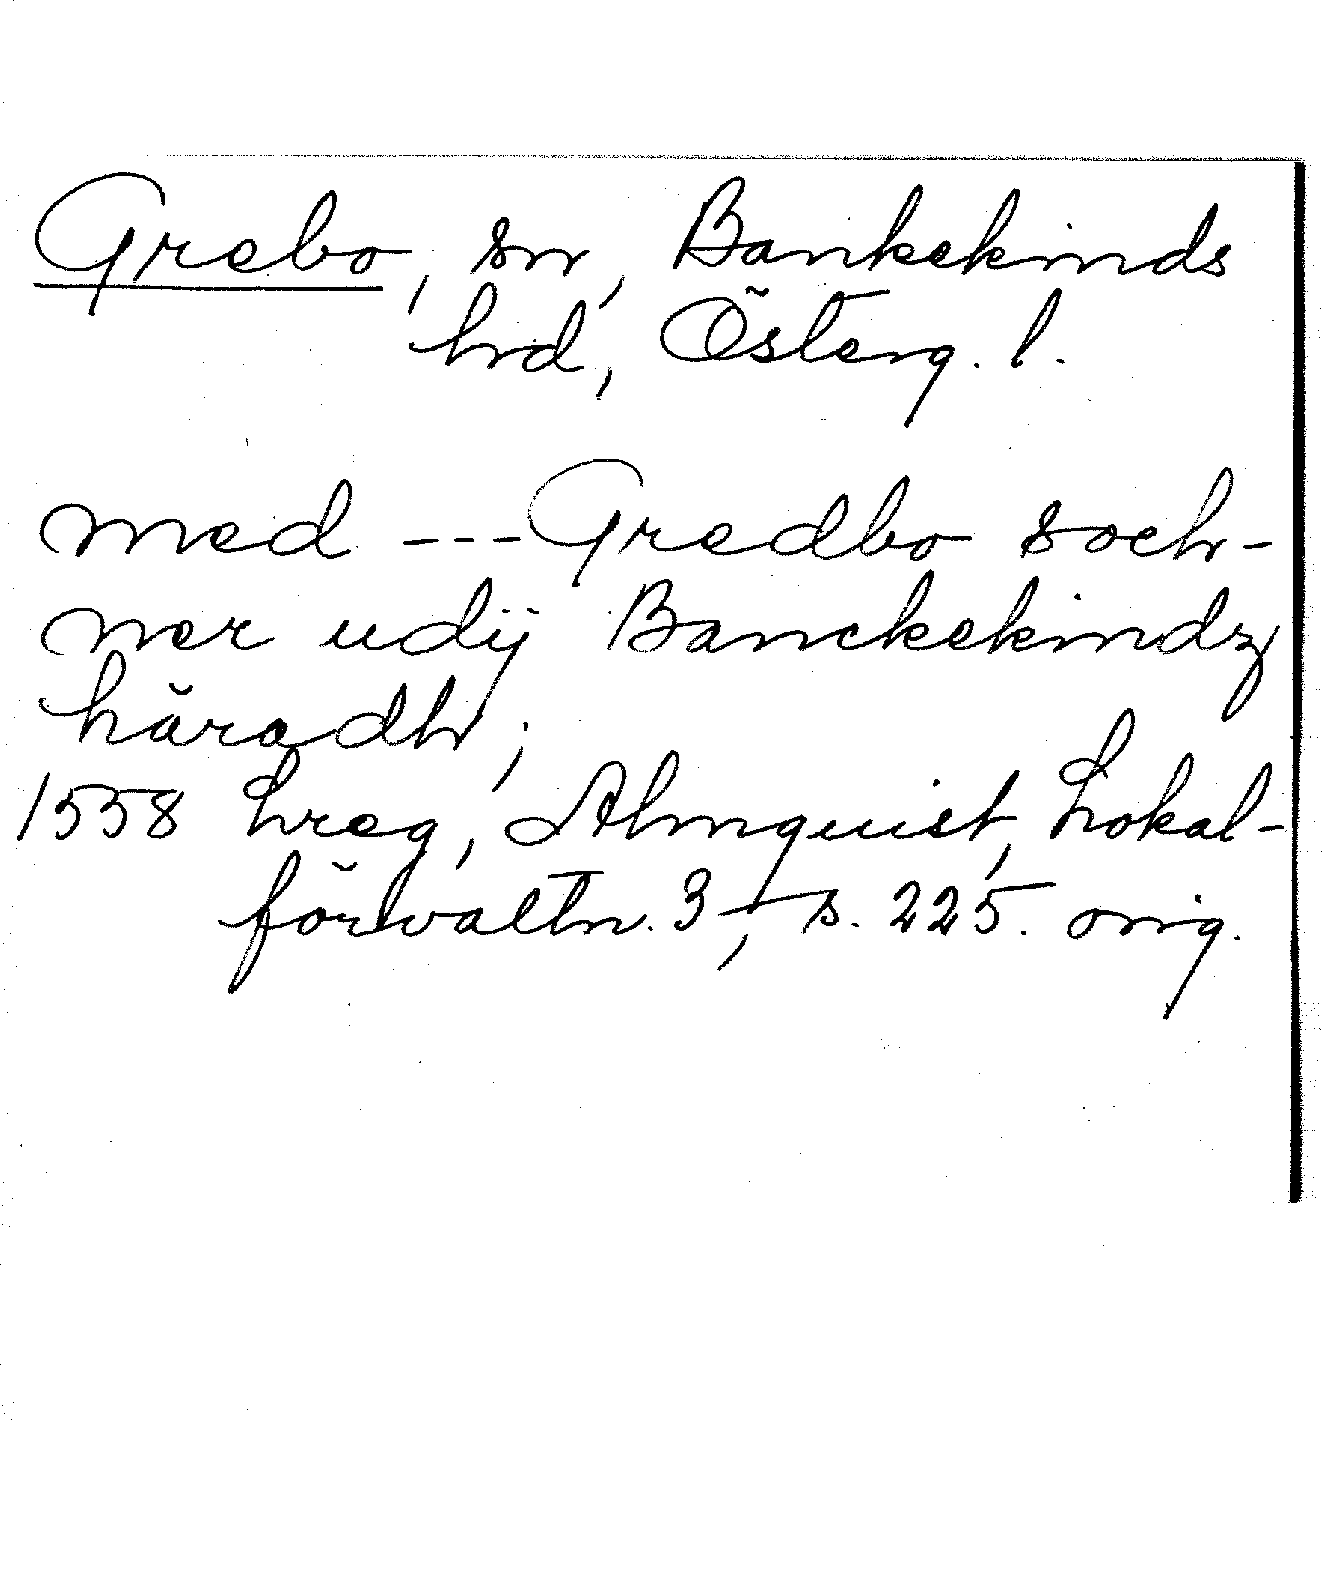 Grebo, sn, Bankekinds
hrd, Österg. l.
med --- Gredbo soch-
ner udij Banckekindz
häradh;
1558 Lreg, Almquist, Lokal-
förvaltn. 3, s. 225. orig.